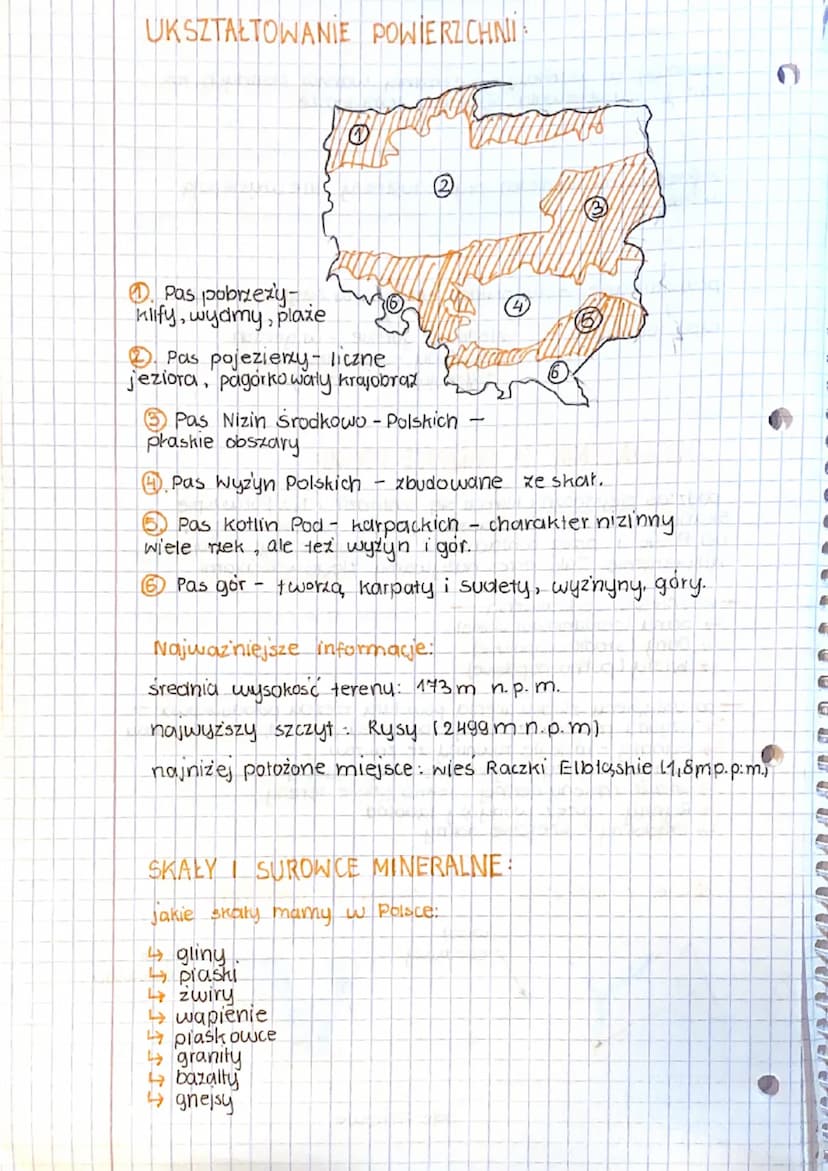 UKSZTAŁTOWANIE POWIERZCHNI:
1
2
3
6
4
5
6
1. Pas pobrzeży-
klify, wydmy, plaże
2. Pas pojezierzy - liczne
jeziora, pagórkowaty krajobraz
3 Pas Nizin Środkowo - Polskich -
płaskie obszary
4. Pas Wyżyn Polskich - zbudowane ze skał.
5. Pas Kotlin Pod - karpackich - charakter nizinny
wiele rzek, ale też wyżyn i gór.
6 Pas gór - tworzą karpaty i sudety, wyżnyny, góry.
Najważniejsze informacje:
średnia wysokość terenu: 173m n.p.m.
najwyższy szczyt: Rysy (2499m n.p.m)
najniżej położone miejsce: wieś Raczki Elbląskie (1,8m p.p.m.)
SKAŁY I SUROWCE MINERALNE:
jakie skały mamy w Polsce:
↳ gliny
↳ piaski
↳ żwiry
↳ wapienie
↳ piaskowce
↳ granity
↳ bazalty
↳ gnejsy